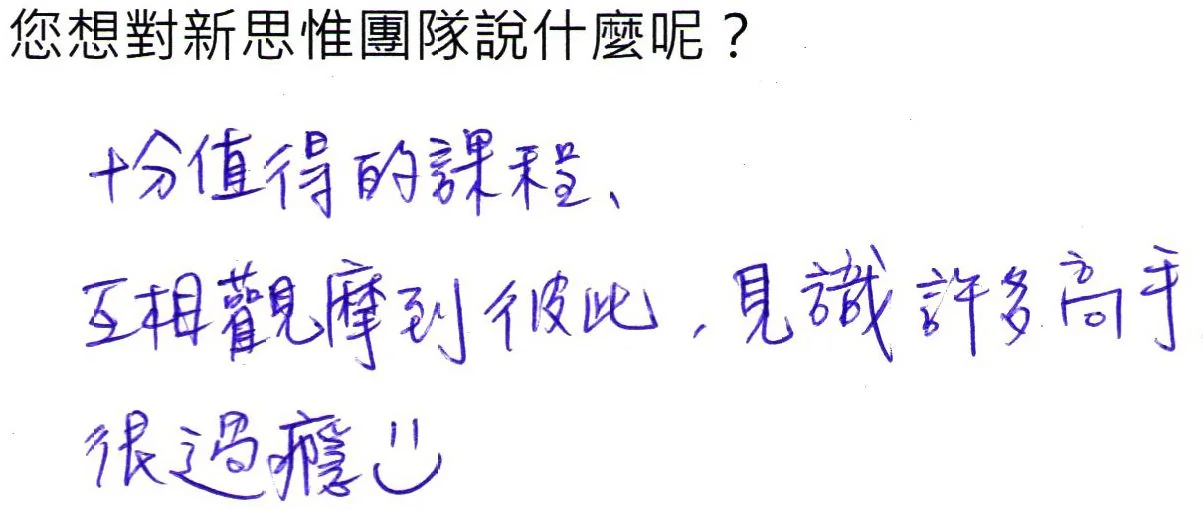 您想對新思惟團隊說什麼呢？
十分值得的課程、
互相觀摩到彼此，見識許多高手
很過癮